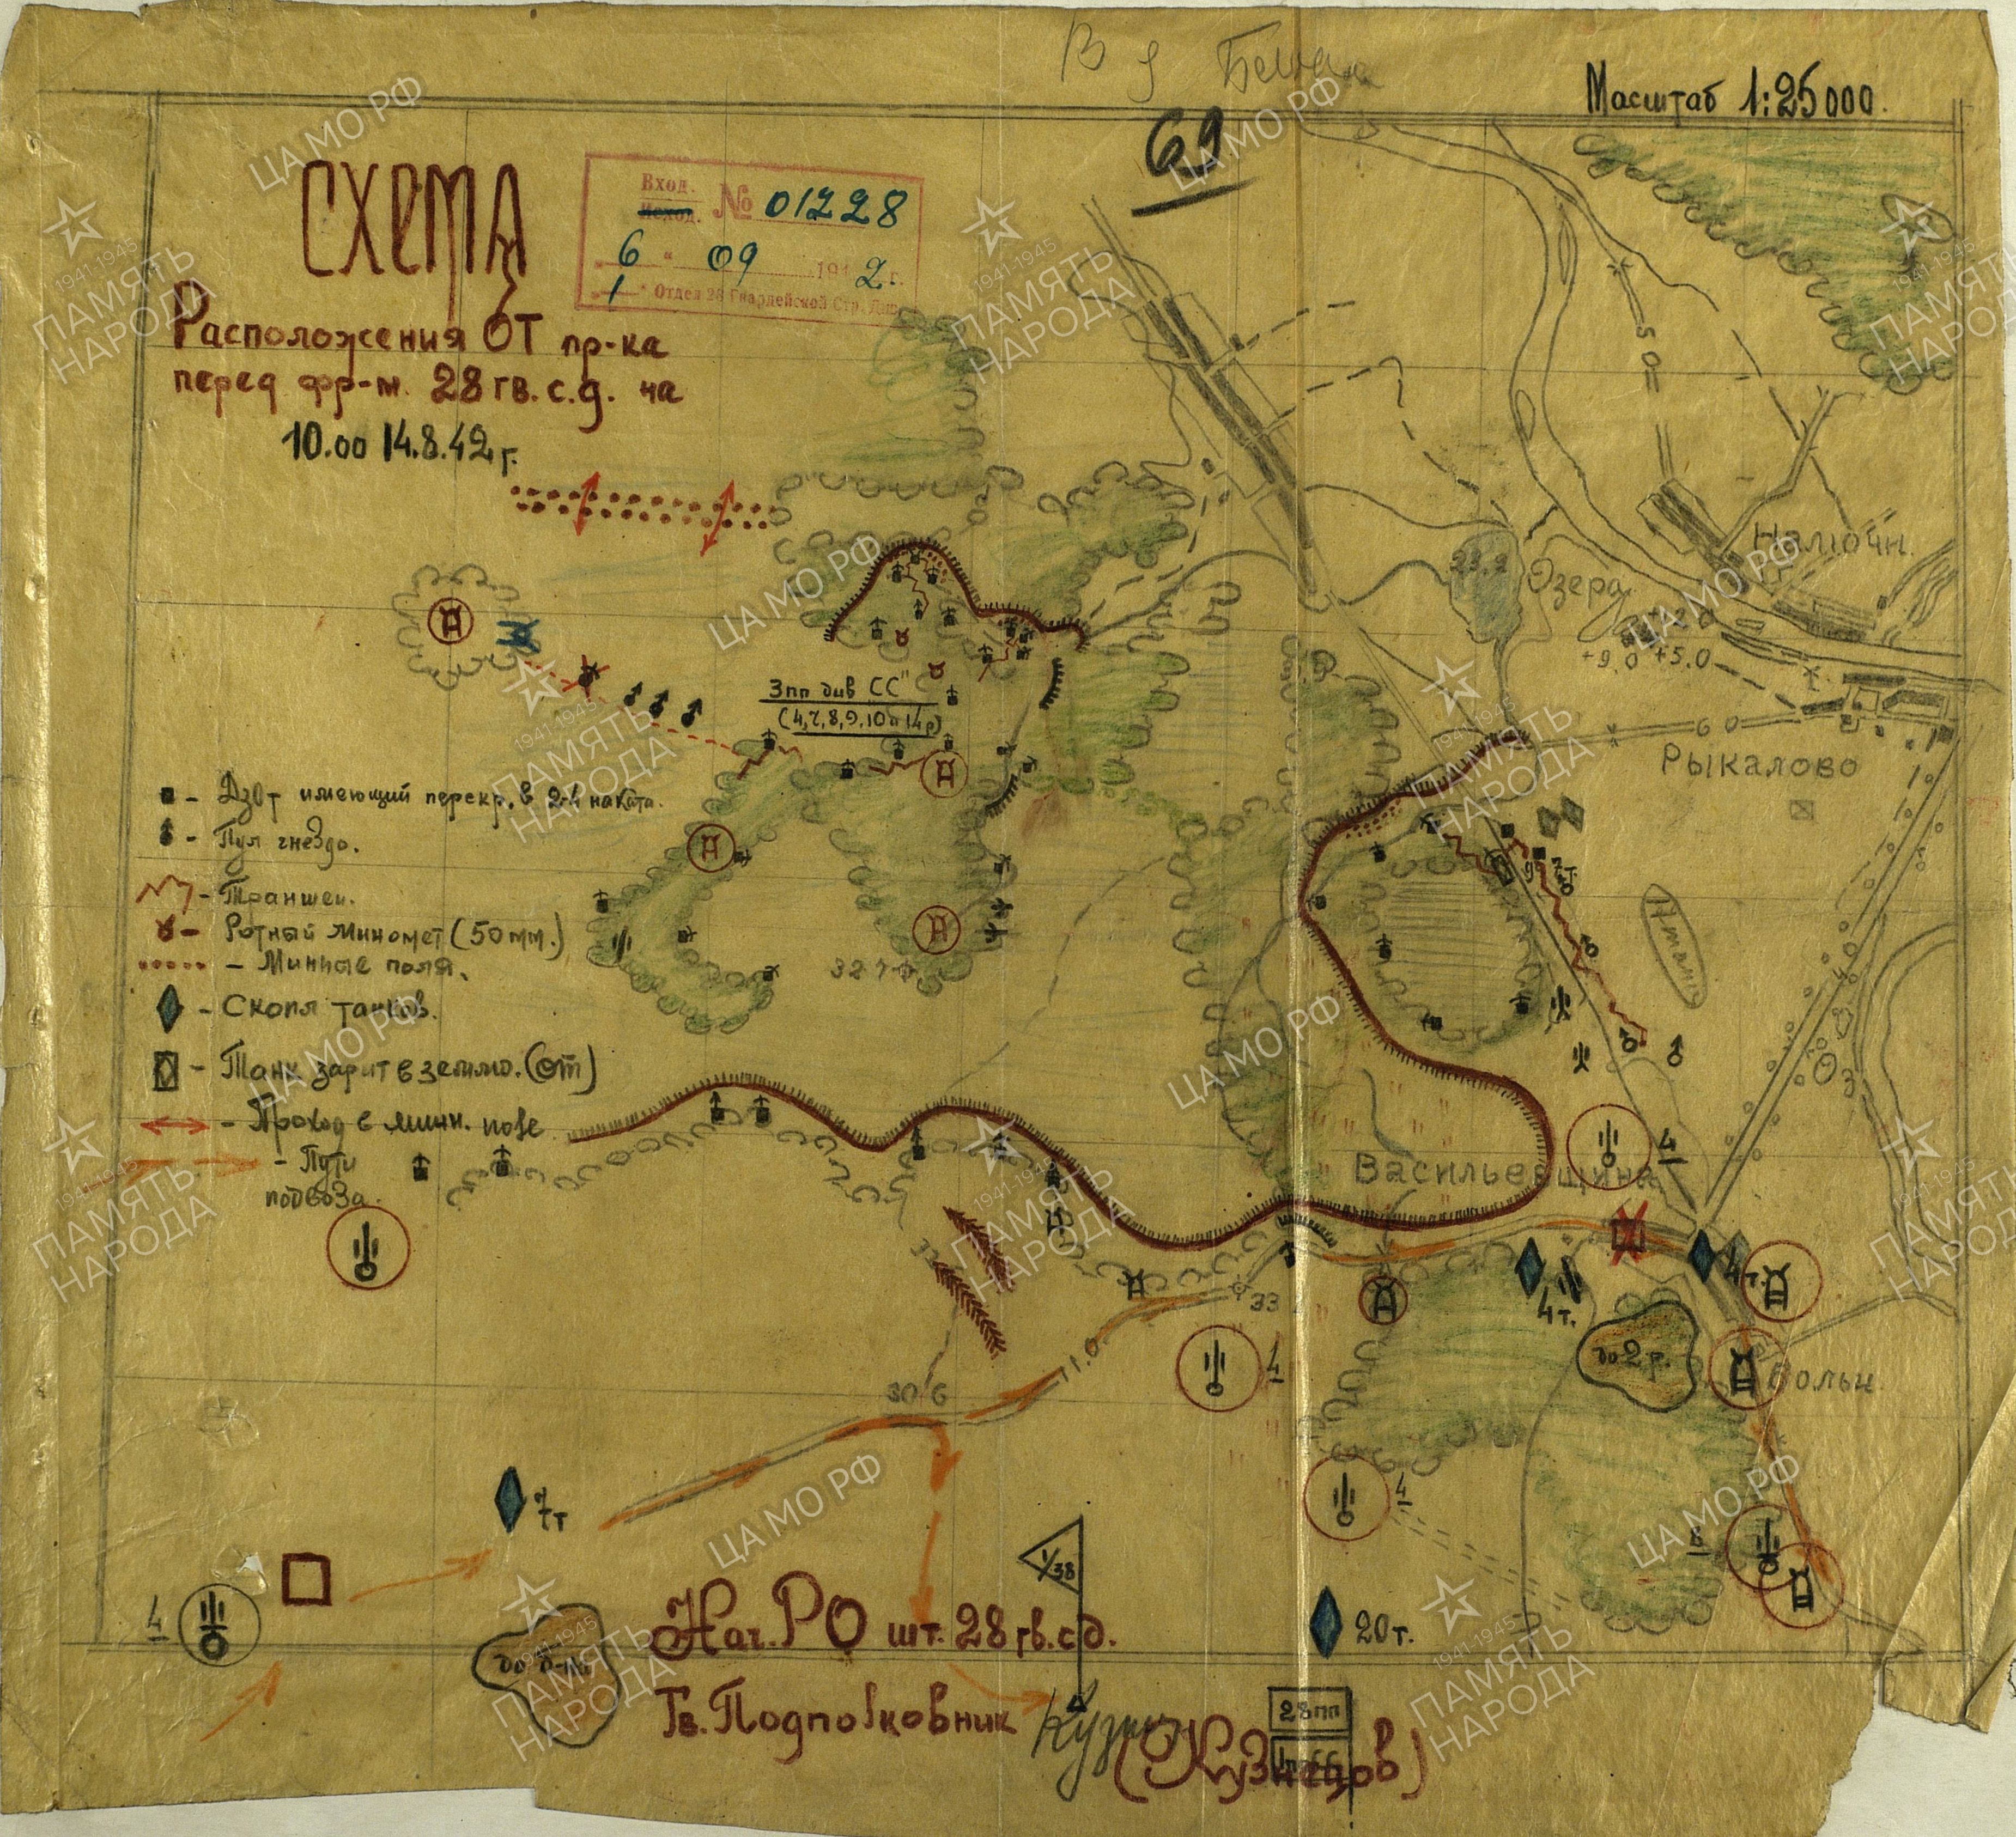 Масштаб 1:25000.
69
Схема
Вход.
Исход. № 01228
6 " 09 1942 г.
Отдел 28 Гвардейской Стр.
Расположения ОТ пр-ка
перед фр-м. 28 гв. с.д. на
10.00 14.8.42 г.
50
Налючи.
23.2
Озера
+9.0 +5.0
60
Рыкалово
3 пп див СС"
(4,7,8,9,10 и 14 р)
- Дзот имеющий перекр. в 2-4 наката.
- Пул гнездо.
- Траншеи.
- Ротный миномет (50 mm.)
- Минные поля.
- Скопл танков.
- Танк зарыт в землю. (от)
- Проход в минн. поле
- Пути
подвоза.
Васильевщина
4
4т.
4т.
до 2 р.
33
11.0
30.6
4
4
7т
1/38
20т.
4
Нач. РО шт. 28 гв. с.д.
Гв. Подполковник
(Кузнецов)
28пп
ЦА МО РФ
1941-1945
ПАМЯТЬ
НАРОДА